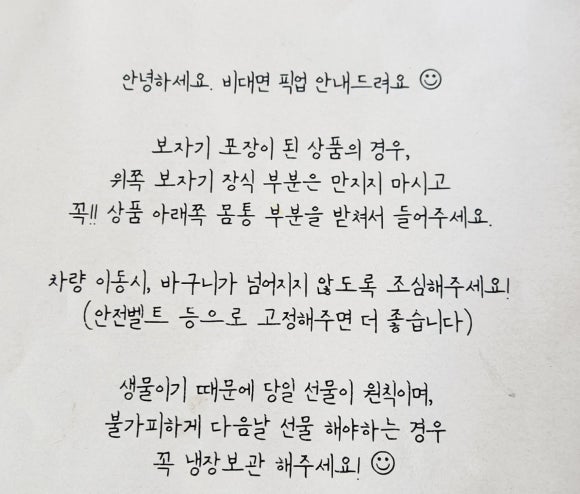 안녕하세요. 비대면 픽업 안내드려요 ☺
보자기 포장이 된 상품의 경우,
위쪽 보자기 장식 부분은 만지지 마시고
꼭!! 상품 아래쪽 몸통 부분을 받쳐서 들어주세요.
차량 이동시, 바구니가 넘어지지 않도록 조심해주세요!
(안전벨트 등으로 고정해주면 더 좋습니다)
생물이기 때문에 당일 선물이 원칙이며,
불가피하게 다음날 선물 해야하는 경우
꼭 냉장보관 해주세요! ☺